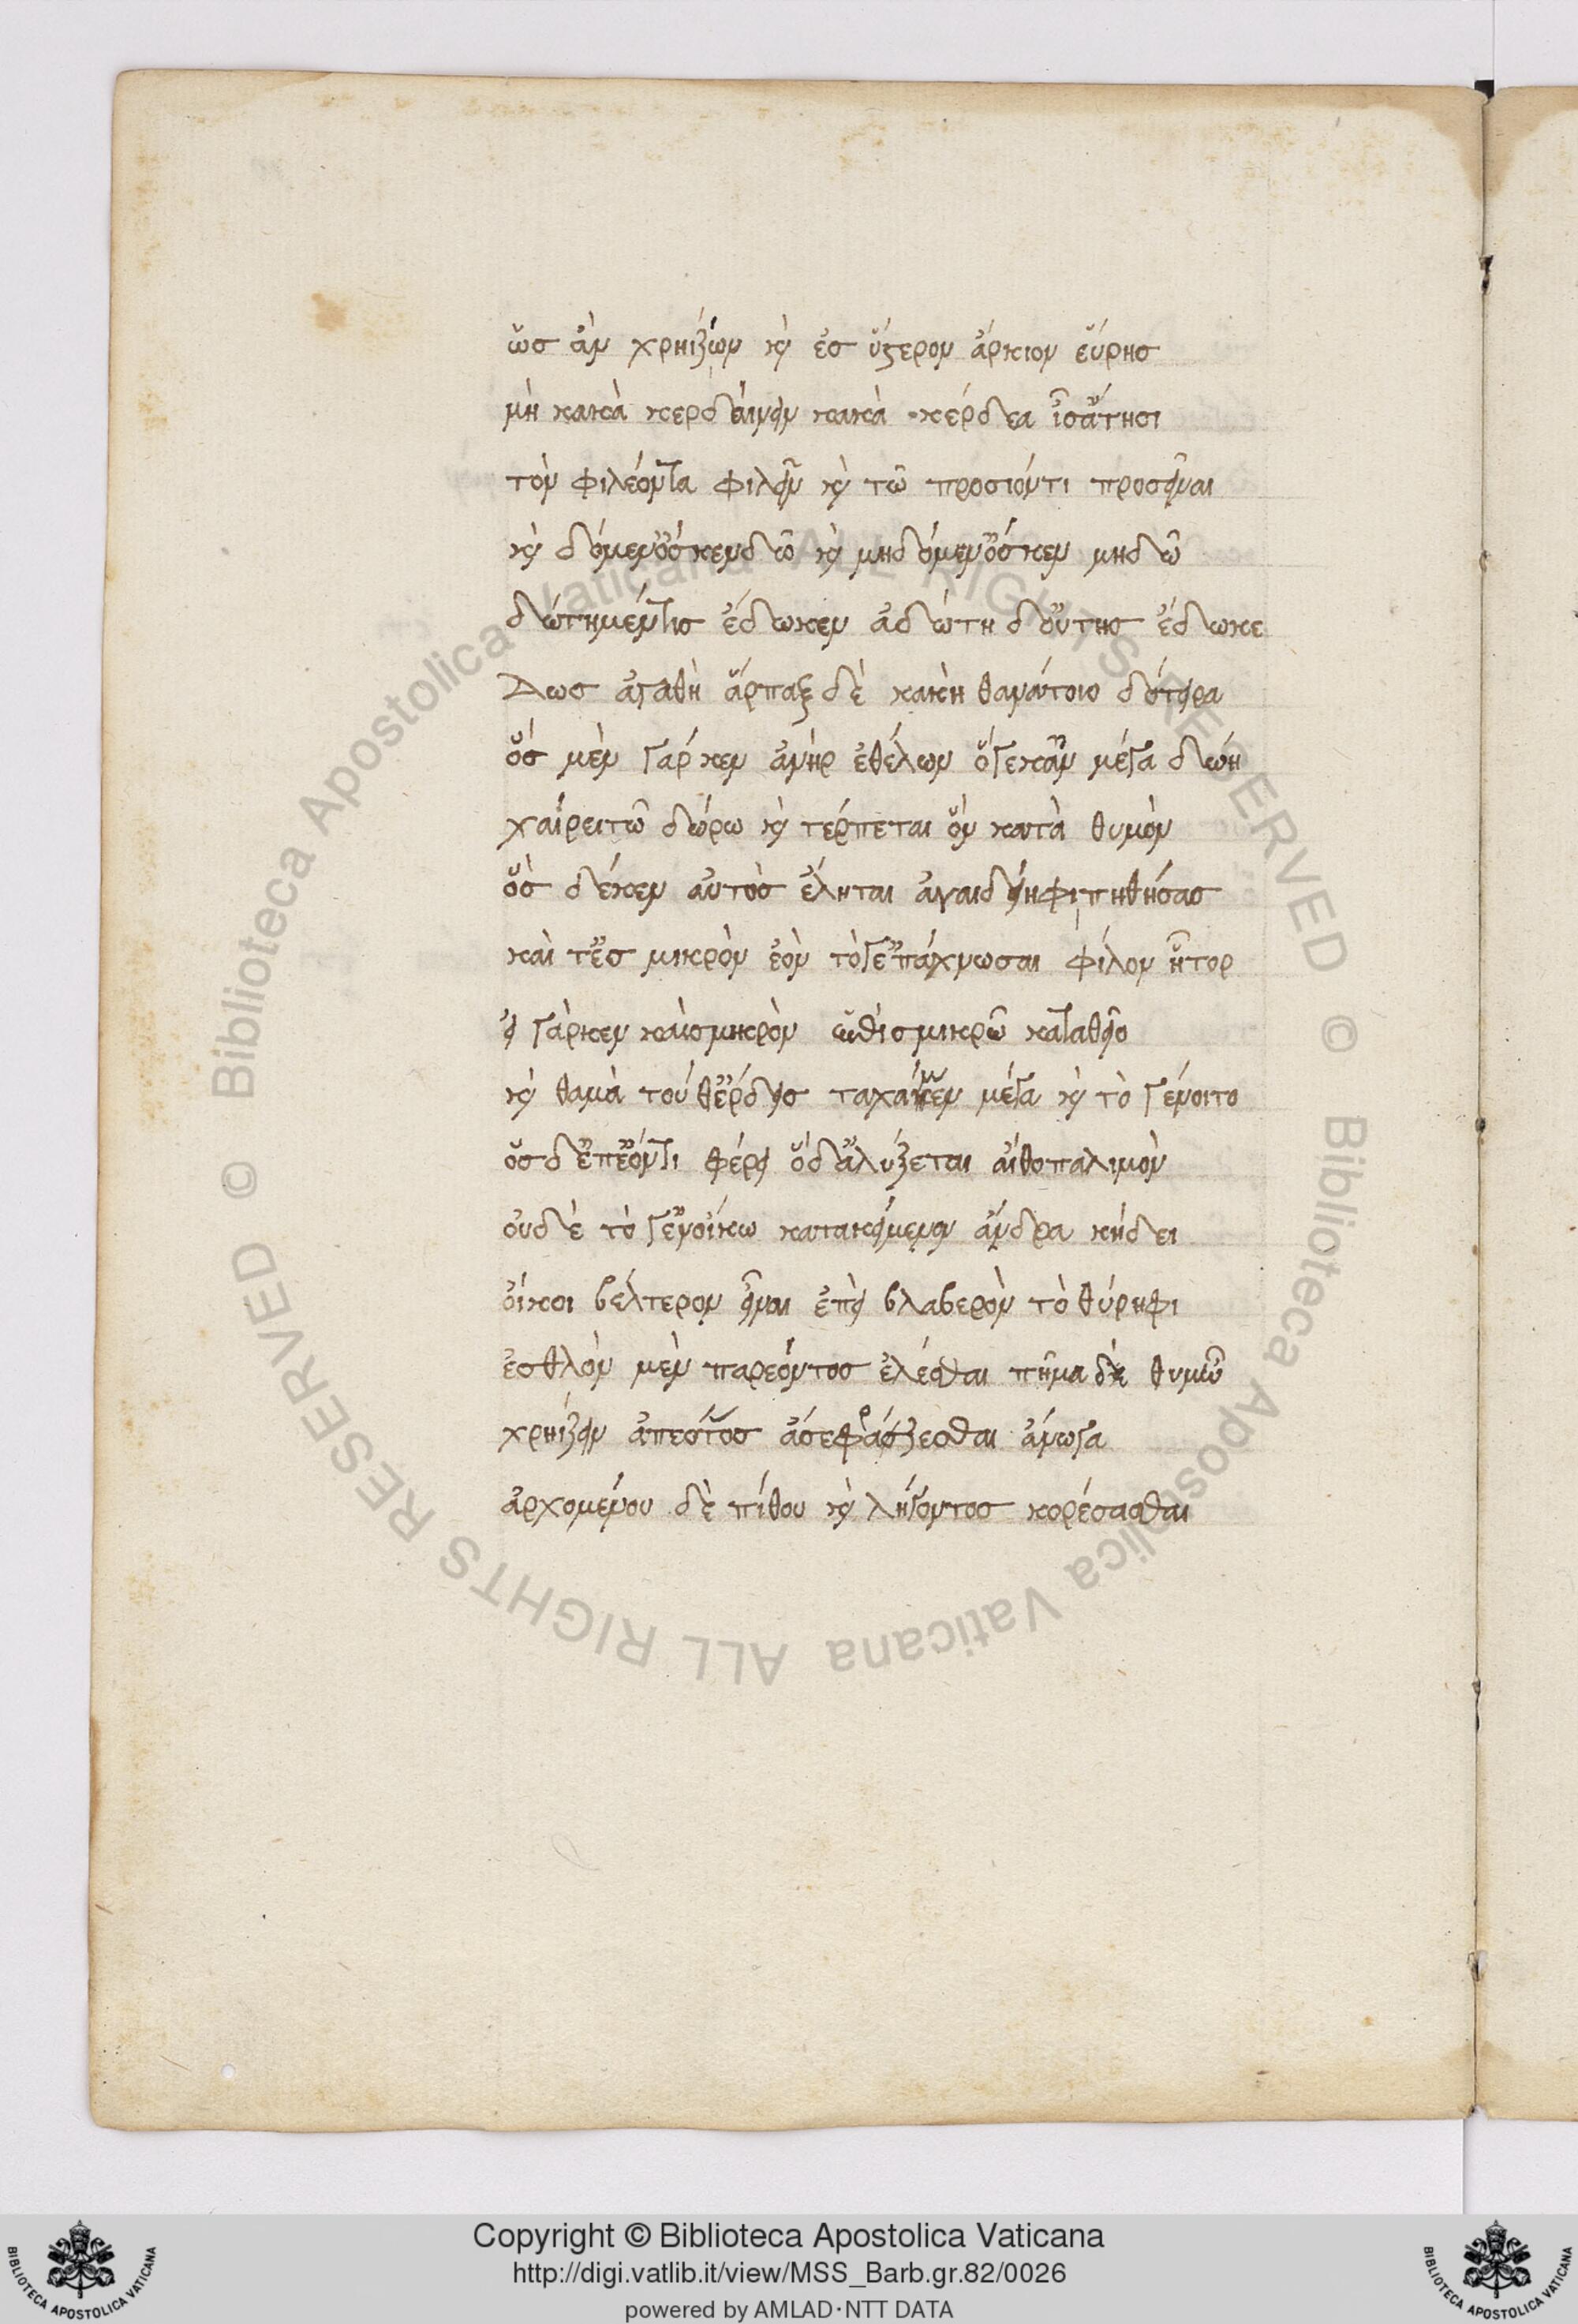 ὥσ ἀν χρηίζων κὶ ἐσ ὕστερον ἄρκιον εὕρησ
μὴ κακὰ κερδαίνειν κακὰ κέρδεα ἶσἄτησι
τὸν φιλέοντα φιλεῖν κὶ τῶ προσιόντι προσεῖναι
κὶ δόμενὅσκενδῶ κὶ μηδόμενὅσκεν μηδῶ
δώτημέντισ ἔδωκεν ἀδώτη δὄυτησ ἔδωκε
Δωσ ἀγαθὴ ἅρπαξ δὲ κακὴ θανάτοιο δότειρα
ὅσ μὲν γαρ κεν ἀνὴρ ἐθέλων ὅγεκἂν μέγα δώη
χαίρειτῶ δώρω κὶ τέρπεται ὅν κατὰ θυμὸν
ὅσ δέκεν αὐτὸσ ἕληται ἀναιδείηφι πηθήσασ
καὶ τἔσ μικρὸν ἐὸν τόγἐπάχνωσαι φίλον ἦτορ
εἰ γὰρκεν καὶσμικρὸν ὠθὶσμικρῶ καταθεῖο
κὶ θαμὰ τούθἔρδεισ ταχάνκεν μέγα κὶ τὸ γένοιτο
ὅσδἐπἐόντι φέρει ὅδἀλύξεται αἴθοπαλιμὸν
οὐδὲ τό γἐνοίκω κατακείμενον ἄνδρα κήδει
οἴκοι βέλτερον εἶναι ἐπεὶ βλαβερὸν τὸ θύρηφι
ἐσθλὸν μὲν παρεόντοσ ἑλέσθαι πῆμα δὲ θυμῶ
χρηίζειν ἀπεόντοσ ἅσεφράζεσθαι ἄνωγα
ἀρχομένου δὲ πίθου κὶ λήγοντοσ κορέσασθαι
Copyright © Biblioteca Apostolica Vaticana
http://digi.vatlib.it/view/MSS_Barb.gr.82/0026
powered by AMLAD·NTT DATA
BIBLIOTECA APOSTOLICA VATICANA
BIBLIOTECA APOSTOLICA VATICANA
© Biblioteca Apostolica Vaticana ALL RIGHTS RESERVED © Biblioteca Apostolica Vaticana ALL RIGHTS RESERVED